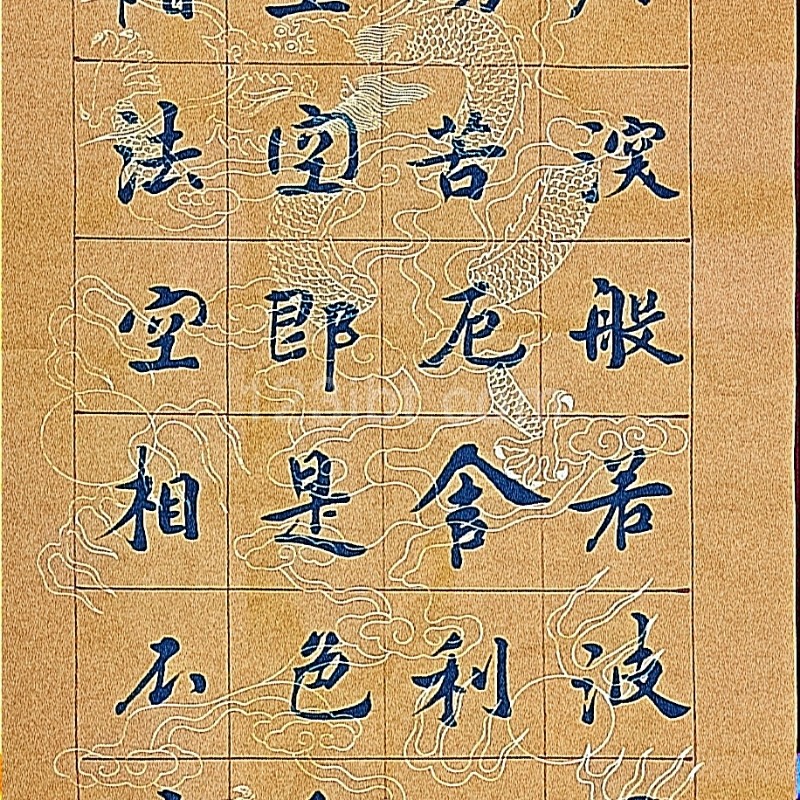 深般若波
苦厄舍利
空即是色
法空相不